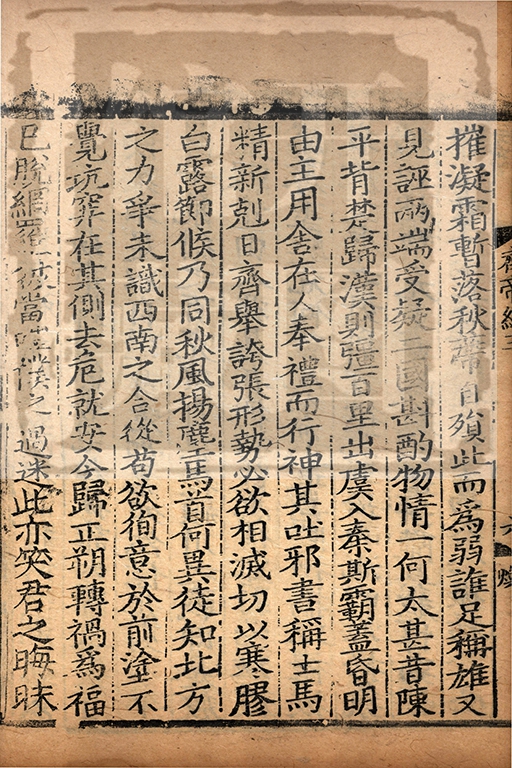 摧凝霜暫落秋蔕自殞此而爲弱誰足稱雄又
見誣兩端受疑二國斟酌物情一何太甚昔陳
平背楚歸漢則彊百里出虞入秦斯霸蓋昏明
由主用舍在人奉禮而行神其吐邪書稱士馬
精新剋日齊舉誇張形勢必欲相滅切以寒膠
白露節候乃同秋風揚塵馬首何異徒知北方
之力爭未識西南之合從苟欲徇意於前塗不
覺坑穽在其側去危就安今歸正朔轉禍爲福
已脫網羅彼當嗤僕之過迷此亦笑君之晦昧
齊帝紀三
六